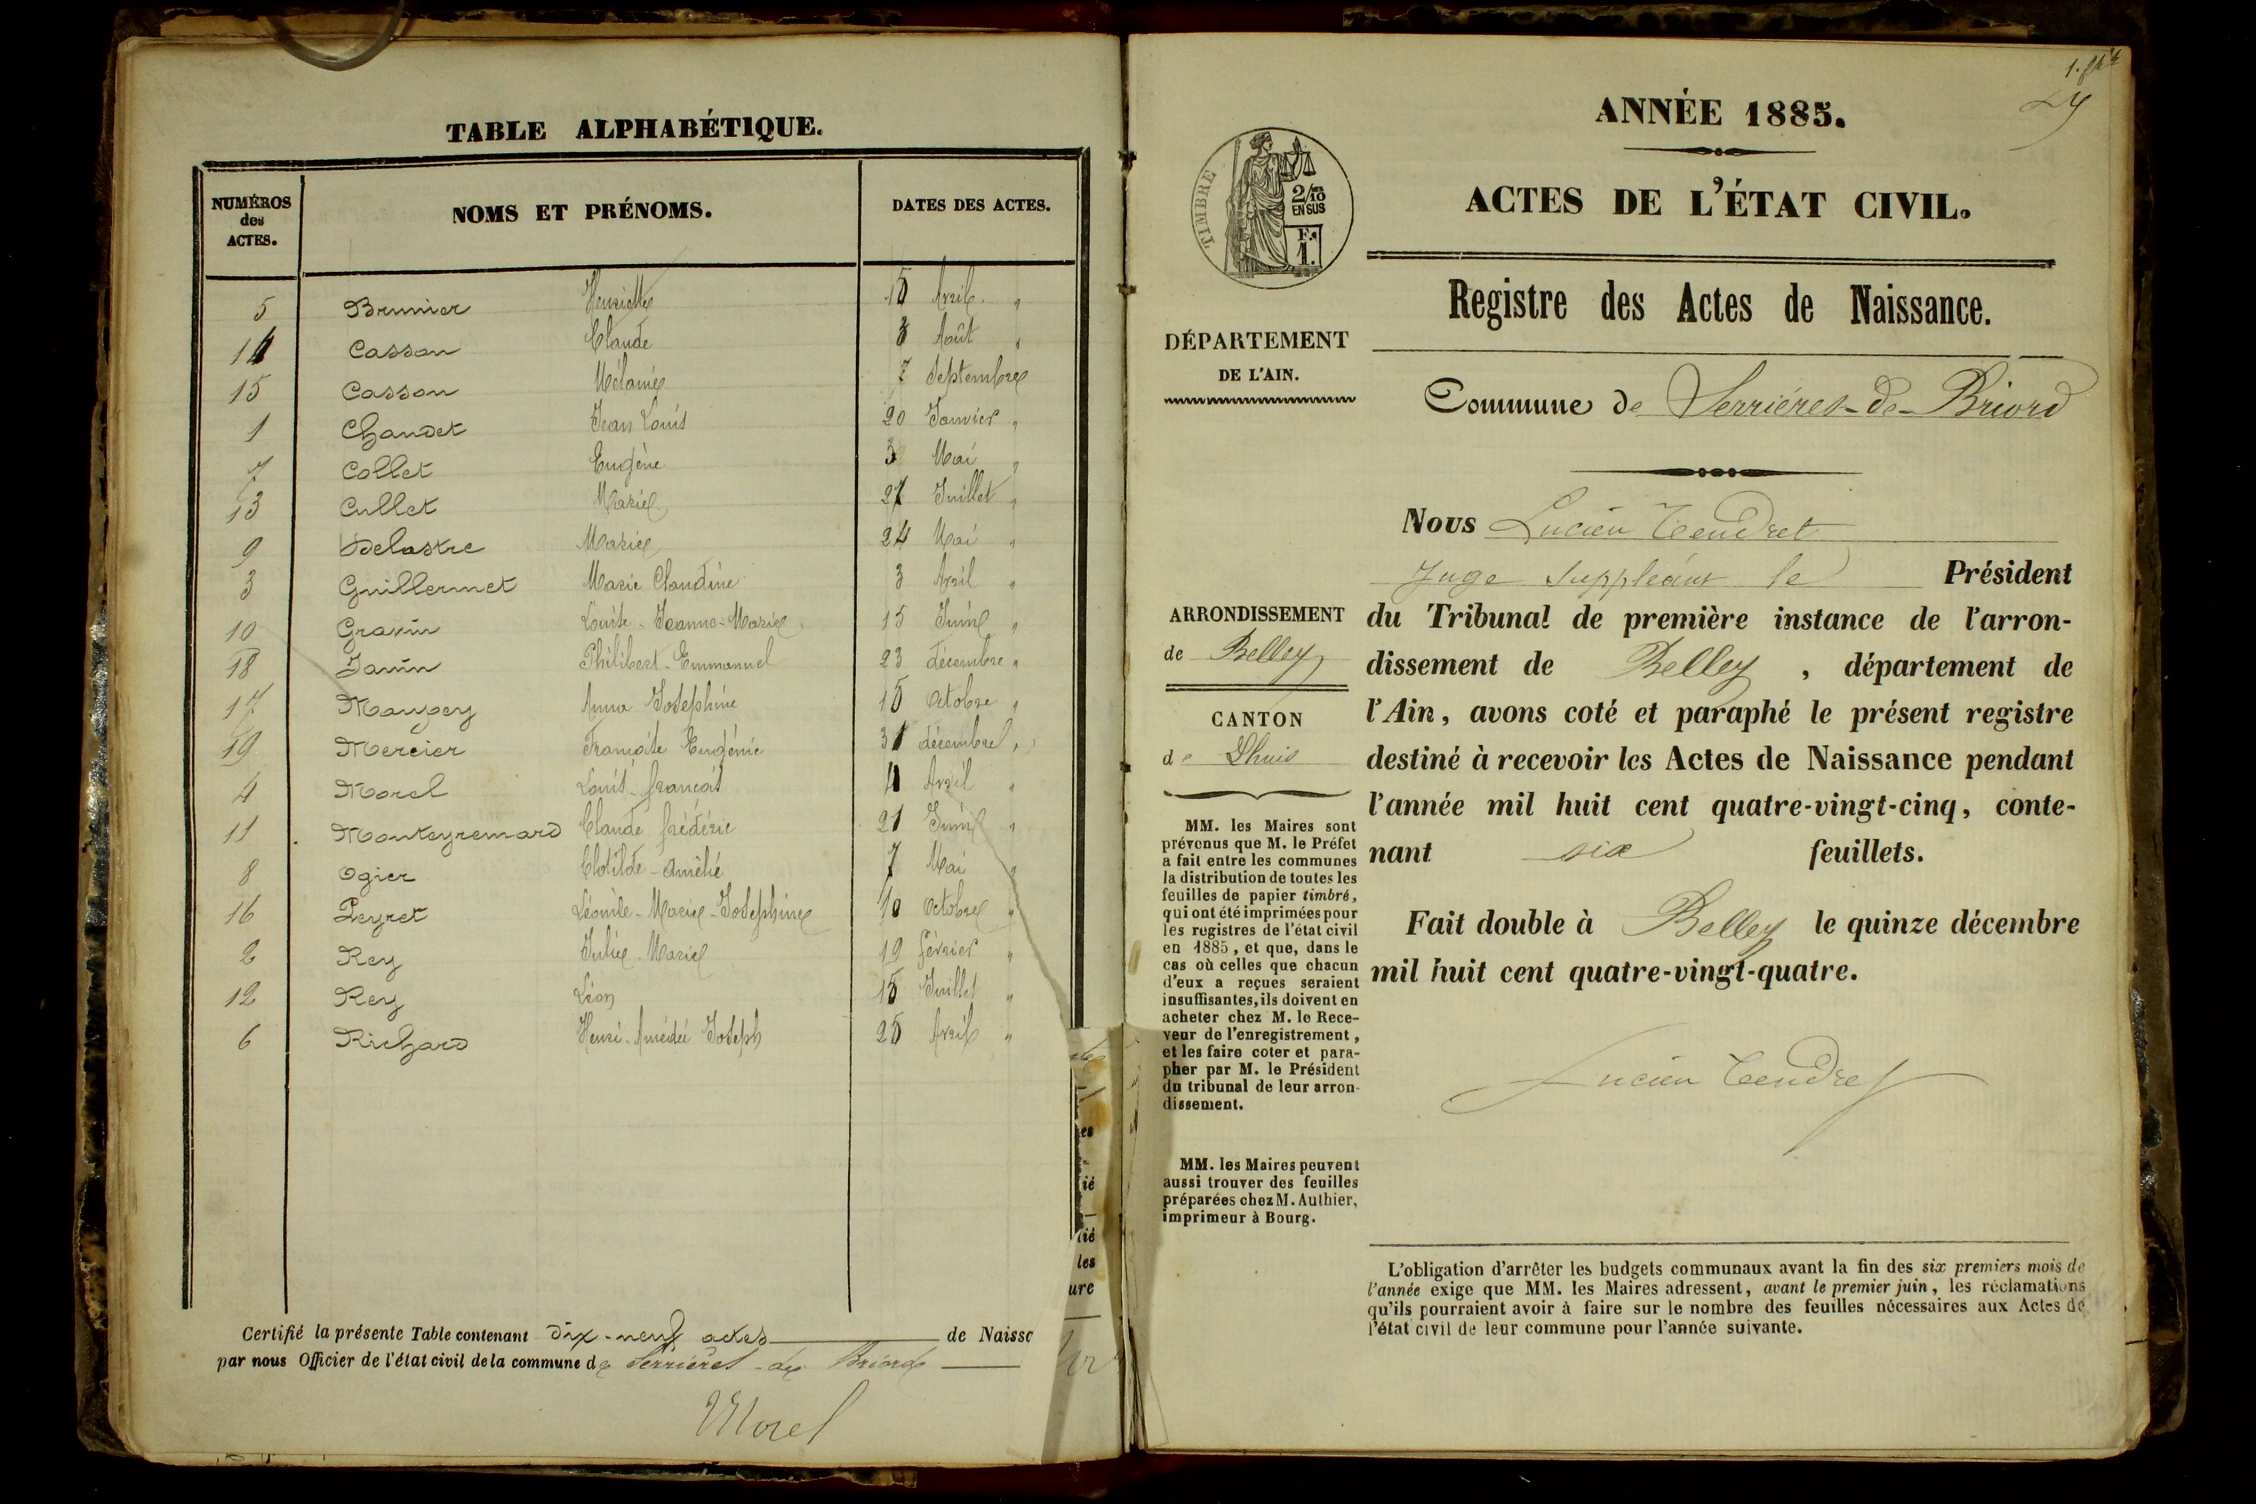 TABLE ALPHABÉTIQUE.
NUMÉROS des ACTES. NOMS ET PRÉNOMS. DATES DES ACTES.
5 Brunier Henriette 15 Avril "
14 Casson Claude 3 Août "
15 Casson Mélanie 7 Septembre
1 Chaudet Jean Louis 20 Janvier "
7 Collet Eugène 3 Mai "
13 Cullet Marie 27 Juillet "
9 Delastre Marie 24 Mai "
3 Guillermet Marie Claudine 3 Avril "
10 Gravin Louise-Jeanne-Marie 15 Juin "
18 Janin Philibert-Emmanuel 23 décembre "
17 Maugey Anna Joséphine 15 Octobre "
19 Mercier Françoise Eugénie 31 décembre "
4 Morel Louis-françois 11 Avril "
11 Monteyremard Claude frédéric 21 Juin "
8 Ogier Clotilde-Amélie 7 Mai "
16 Peyret Léonile-Marie-Joséphine 10 Octobre "
2 Rey Julie-Marie 19 février "
12 Rey Léon 15 Juillet "
6 Richard Henri-Amédée Joseph 25 Avril "
Certifié la présente Table contenant dix-neuf actes de Naiss
par nous Officier de l'état civil de la commune de Serrières-de Briord
Morel
ié
les
ure
ANNÉE 1885.
ACTES DE L'ÉTAT CIVIL.
TIMBRE
2/10
EN SUS
F.
1.
Registre des Actes de Naissance.
DÉPARTEMENT
DE L'AIN.
Commune de Serrières-de-Briord
Nous Lucien Tendret
Juge Suppléant le Président
du Tribunal de première instance de l'arron-
dissement de Belley, département de
l'Ain, avons coté et paraphé le présent registre
destiné à recevoir les Actes de Naissance pendant
l'année mil huit cent quatre-vingt-cinq, conte-
nant six feuillets.
Fait double à Belley le quinze décembre
mil huit cent quatre-vingt-quatre.
Lucien Tendret
ARRONDISSEMENT
de Belley
CANTON
de Lhuis
MM. les Maires sont
prévenus que M. le Préfet
a fait entre les communes
la distribution de toutes les
feuilles de papier timbré,
qui ont été imprimées pour
les registres de l'état civil
en 1885, et que, dans le
cas où celles que chacun
d'eux a reçues seraient
insuffisantes, ils doivent en
acheter chez M. le Rece-
veur de l'enregistrement,
et les faire coter et para-
pher par M. le Président
du tribunal de leur arron-
dissement.
MM. les Maires peuvent
aussi trouver des feuilles
préparées chez M. Authier,
imprimeur à Bourg.
L'obligation d'arrêter les budgets communaux avant la fin des six premiers mois de
l'année exige que MM. les Maires adressent, avant le premier juin, les réclamations
qu'ils pourraient avoir à faire sur le nombre des feuilles nécessaires aux Actes de
l'état civil de leur commune pour l'année suivante.